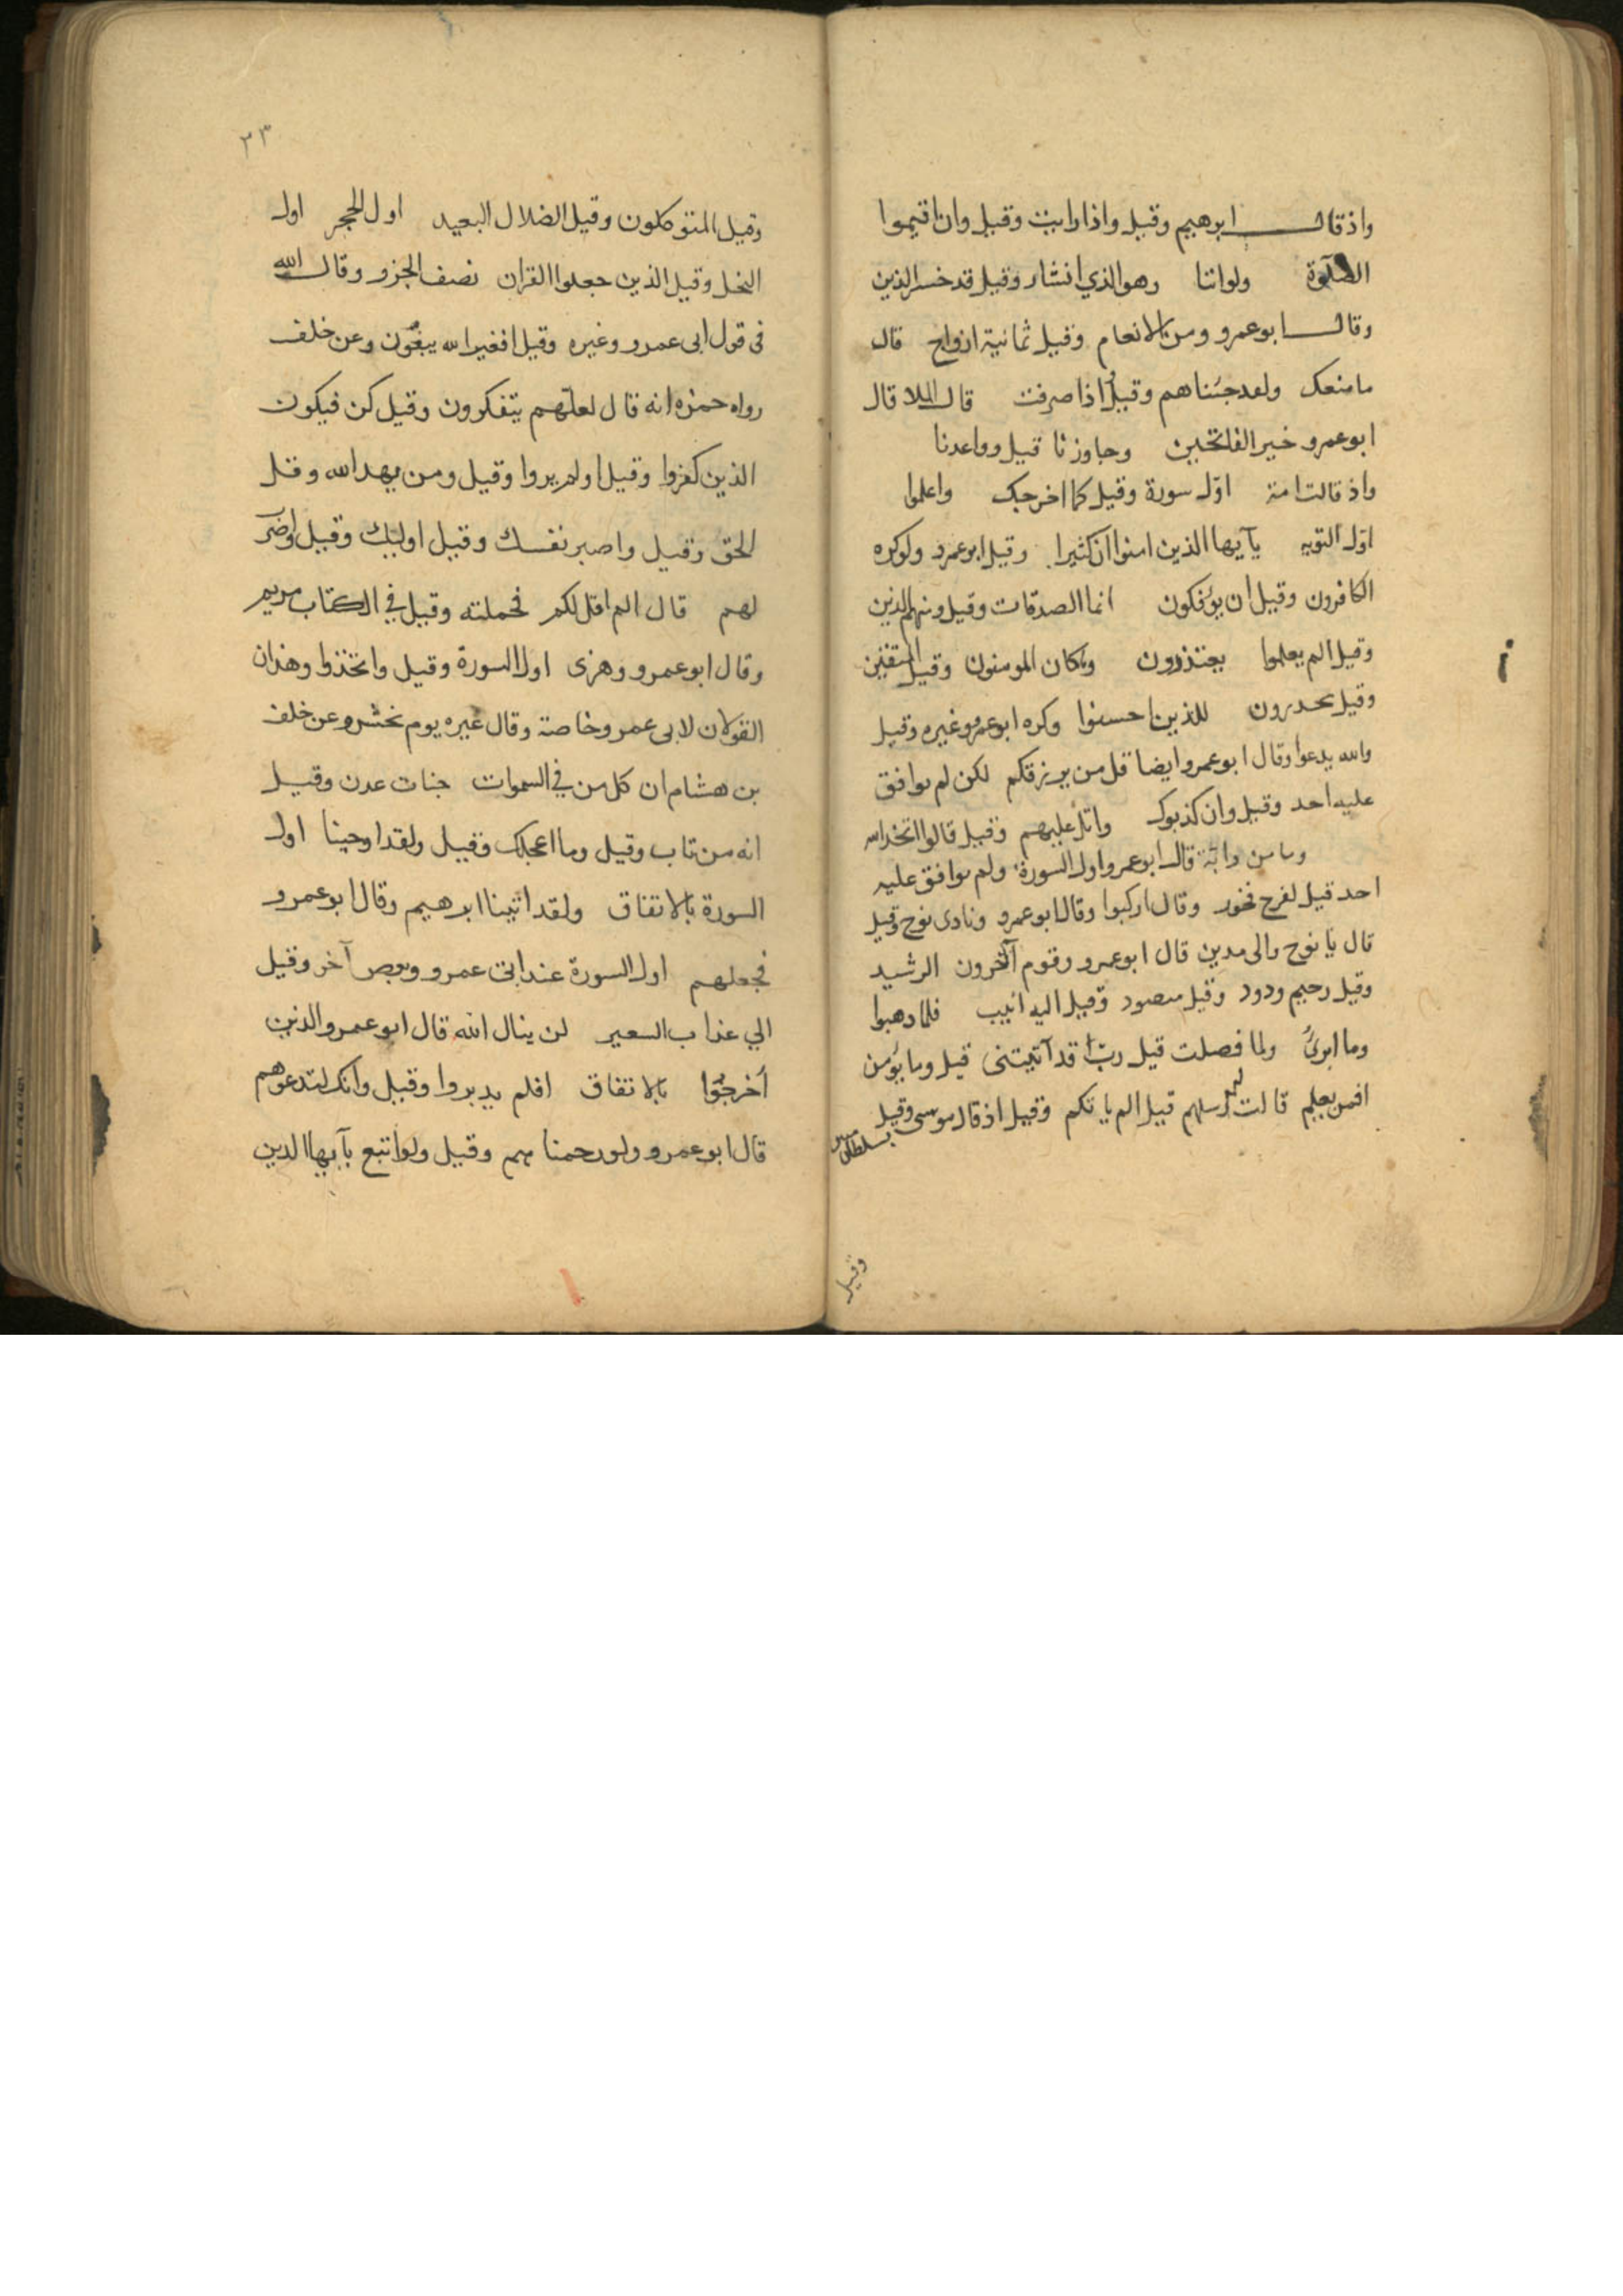 واذ قال ابرهيم وقيل واذا رايت وقيل وان اقيموا
الصلوة ولو اننا وهو الذي انشاء وقيل قد خسر الذين
وقال ابو عمرو ومن الانعام وقيل ثمانية ازواج قال
ما منعك ولقد جئناهم وقيل واذا صرفت قال الملا قال
ابو عمرو خير الفاتحين وجاوزنا قيل وواعدنا
واذ قالت امة اول سورة وقيل كما اخرجك واعلموا
اول التوبه يآيها الذين امنوا ان كثيرا وقيل ابو عمرو ولو كره
الكافرون وقيل ان يؤفكون انما الصدقات وقيل ومنهم الذين
وقيل الم يعلموا يعتذرون وما كان المومنون وقيل المتقين
وقيل يحذرون للذين احسنوا وكره ابو عمرو وغيره وقيل
والله يدعوا وقال ابو عمرو ايضا قل من يرزقكم لكن لم يوافق
عليه احد وقيل وان كذبوك واتل عليهم وقيل قالوا اتخذ الله
وما من دابة قال ابو عمرو اول السورة ولم يوافق عليه
احد قيل لفرح فخور وقال اركبوا وقال ابو عمرو ونادى نوح وقيل
قال يا نوح والى مدين قال ابو عمرو وقوم آخرون الرشيد
وقيل رحيم ودود وقيل منضود وقيل اليه انيب فلما ذهبوا
وما ابرئ ولما فصلت قيل رب قد آتيتنى قيل وما يؤمن
افمن يعلم قالت لهم رسلهم قيل الم ياتكم وقيل اذ قال موسى وقيل
بسلطان مبين
وقيل
٢٣
وقيل المتوكلون وقيل الضلال البعيد اول الحجر اول
النحل وقيل الذين جعلوا القران نصف الجزو وقال الله
فى قول ابى عمرو وغيره وقيل افغير الله يبغون وعن خلف
رواه حمزه انه قال لعلهم يتفكرون وقيل كن فيكون
الذين كفروا وقيل اولم يروا وقيل ومن يهد الله وقل
الحق وقيل واصبر نفسك وقيل اوليك وقيل واضرب
لهم قال الم اقل لكم فحملته وقيل في الكتاب مريم
وقال ابو عمرو وهزى اول السورة وقيل واتخذوا وهذان
القولان لابى عمرو خاصة وقال غيره يوم نحشر وعن خلف
بن هشام ان كل من في السموات جنات عدن وقيل
انه من تاب وقيل وما اعجلك وقيل ولقد اوحينا اول
السورة بالاتفاق ولقد اتينا ابرهيم وقال ابو عمرو
فجعلهم اول السورة عند ابى عمرو وبعض آخر وقيل
الي عذاب السعير لن ينال الله قال ابو عمرو والذين
أخرجوا بالاتفاق افلم يدبروا وقيل وانك لتدعوهم
قال ابو عمرو ولو رحمناهم وقيل ولو اتبع يآيها الذين